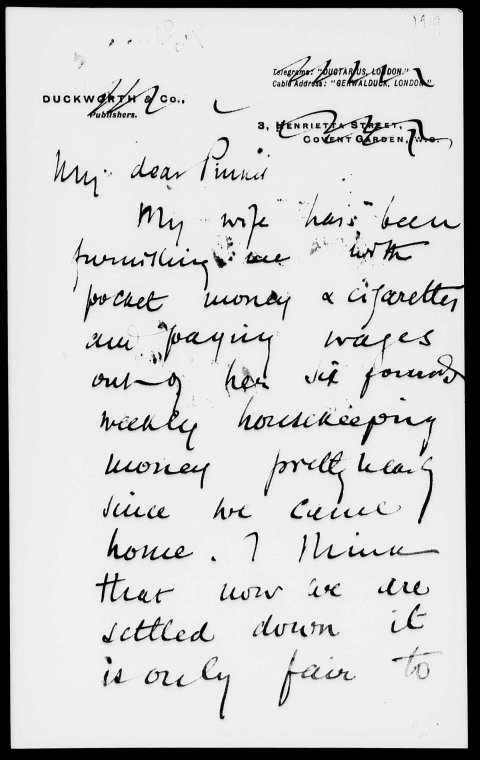 1919
Telegrams: "DUCTARIUS, LONDON."
Cable Address: "GERWALDUCK, LONDON."
DUCKWORTH & Co.,
Publishers.
3, HENRIETTA STREET,
COVENT GARDEN, W.C.
My dear Pinker
My wife has been
furnishing me with
pocket money & cigarettes
and paying wages
out of her six pounds
weekly housekeeping
money pretty nearly
since we came
home. I think
that now we are
settled down it
is only fair to